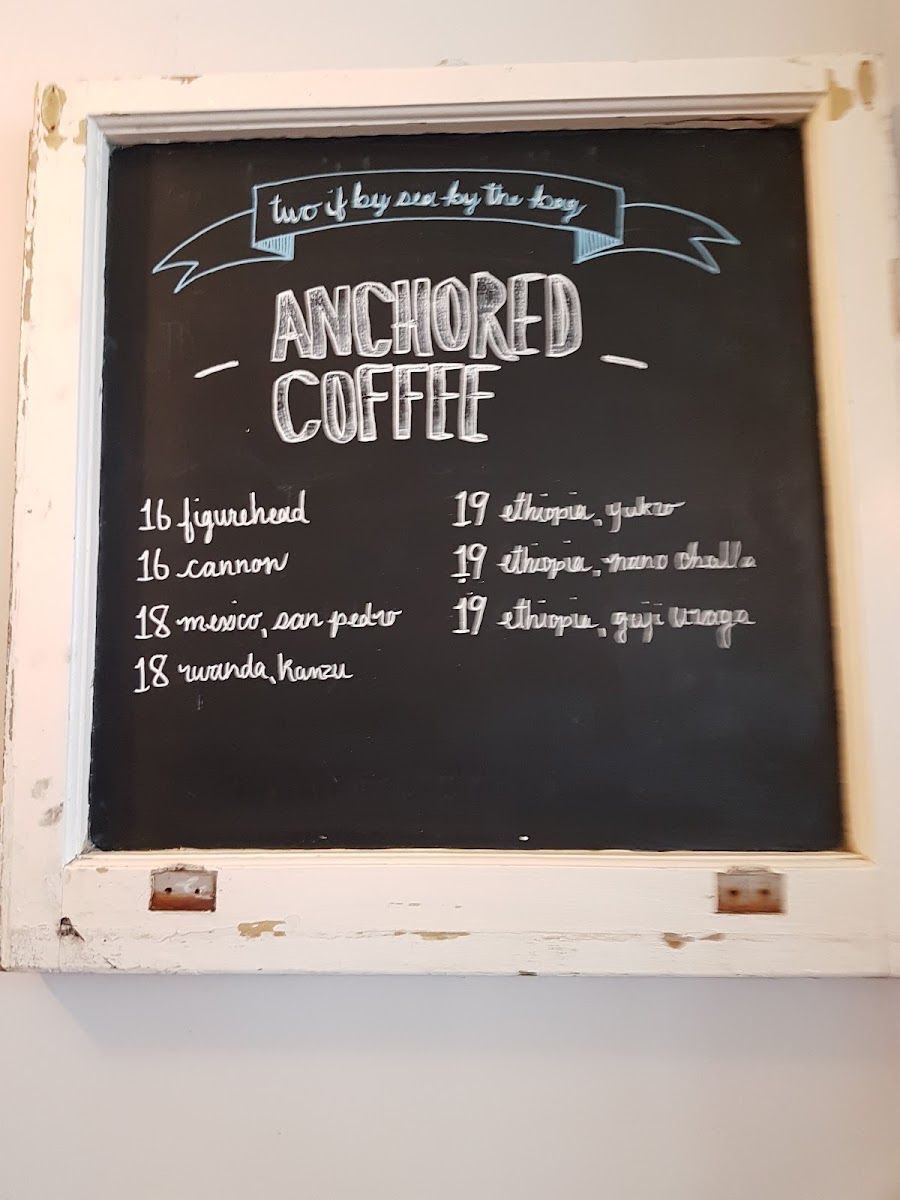 two if by sea by the bag
ANCHORED
COFFEE
16 figurehead
16 cannon
18 mexico, san pedro
18 rwanda, kanzu
19 ethiopia, yukro
19 ethiopia, nano challa
19 ethiopia, guji uraga